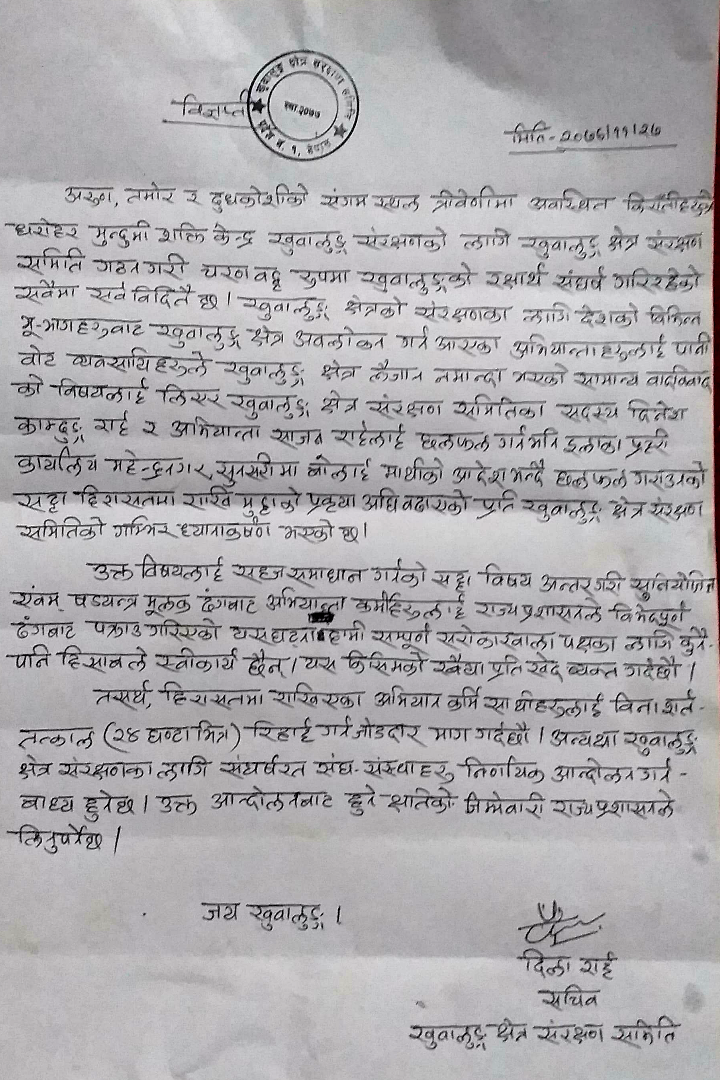 खुवालुङ्ग क्षेत्र संरक्षण समिति
स्था.२०७७
प्रदेश नं. १, नेपाल
विज्ञप्ती
मिति- २०७७/११/२७
अरुण, तमोर र दुधकोशीको संगम स्थल त्रीवेणीमा अवस्थित किरातीहरुको
धरोहर मुन्दुमी शक्ति केन्द्र खुवालुङ्ग संरक्षणको लागि खुवालुङ्ग क्षेत्र संरक्षण
समिति गठन गरी चरणवद्ध रुपमा खुवालुङ्गको रक्षार्थ संघर्ष गरिरहेको
सवैमा सर्व विदितै छ। खुवालुङ्ग क्षेत्रको संरक्षणका लागि देशको विभिन्न
भू-भागहरुवाट खुवालुङ्ग क्षेत्र अवलोकन गर्न आएका अभियान्ताहरुलाई पानी
वोट व्यवसायिहरुले खुवालुङ्ग क्षेत्र लैजान नमान्दा भएको सामान्य वादविवाद
को विषयलाई लिएर खुवालुङ्ग क्षेत्र संरक्षण समितिका सदस्य दिनेश
काम्दुङ्ग राई र अभियान्ता साजन राईलाई छलफल गर्न भनि इलाका प्रहरी
कार्यालय महेन्द्रनगर, सुनसरीमा बोलाई माथीको आदेश भन्दै छलफल गराउनको
सट्टा हिरासतमा राखि मुद्दाको प्रकृया अघि वढाएको प्रति खुवालुङ्ग क्षेत्र संरक्षण
समितिको गम्भिर ध्यानाकर्षण भएको छ।
उक्त विषयलाई सहज समाधान गर्नको सट्टा विषय अन्तर गरी सुनियोजित
एंवम् षडयन्त्र मूलक ढंगबाट अभियान्ता कर्मीहरुलाई राज्यप्रशासनले विभेदपूर्ण
ढंगबाट पक्राउ गरिएको यस घटना हामी सम्पूर्ण सरोकारवाला पक्षका लागि कुनै-
पनि हिसाबले स्वीकार्य छैन्। यस किसिमको रवैया प्रति खेद व्यक्त गर्दछौ।
तसर्थ, हिरासतमा राखिएका अभियान कर्मि साथीहरुलाई विना शर्त-
तत्काल (२४ घण्टा भित्र) रिहाई गर्न जोडदार माग गर्दछौ। अन्यथा खुवालुङ्ग
क्षेत्र संरक्षणका लागि संघर्षरत संघ-संस्थाहरु निर्णायक आन्दोलन गर्न-
बाध्य हुनेछ। उक्त आन्दोलनबाट हुने क्षतिको जिम्मेवारी राज्यप्रशासनले
लिनुपर्नेछ।
जय खुवालुङ्ग।
दिला राई
सचिव
खुवालुङ्ग क्षेत्र संरक्षण समिति